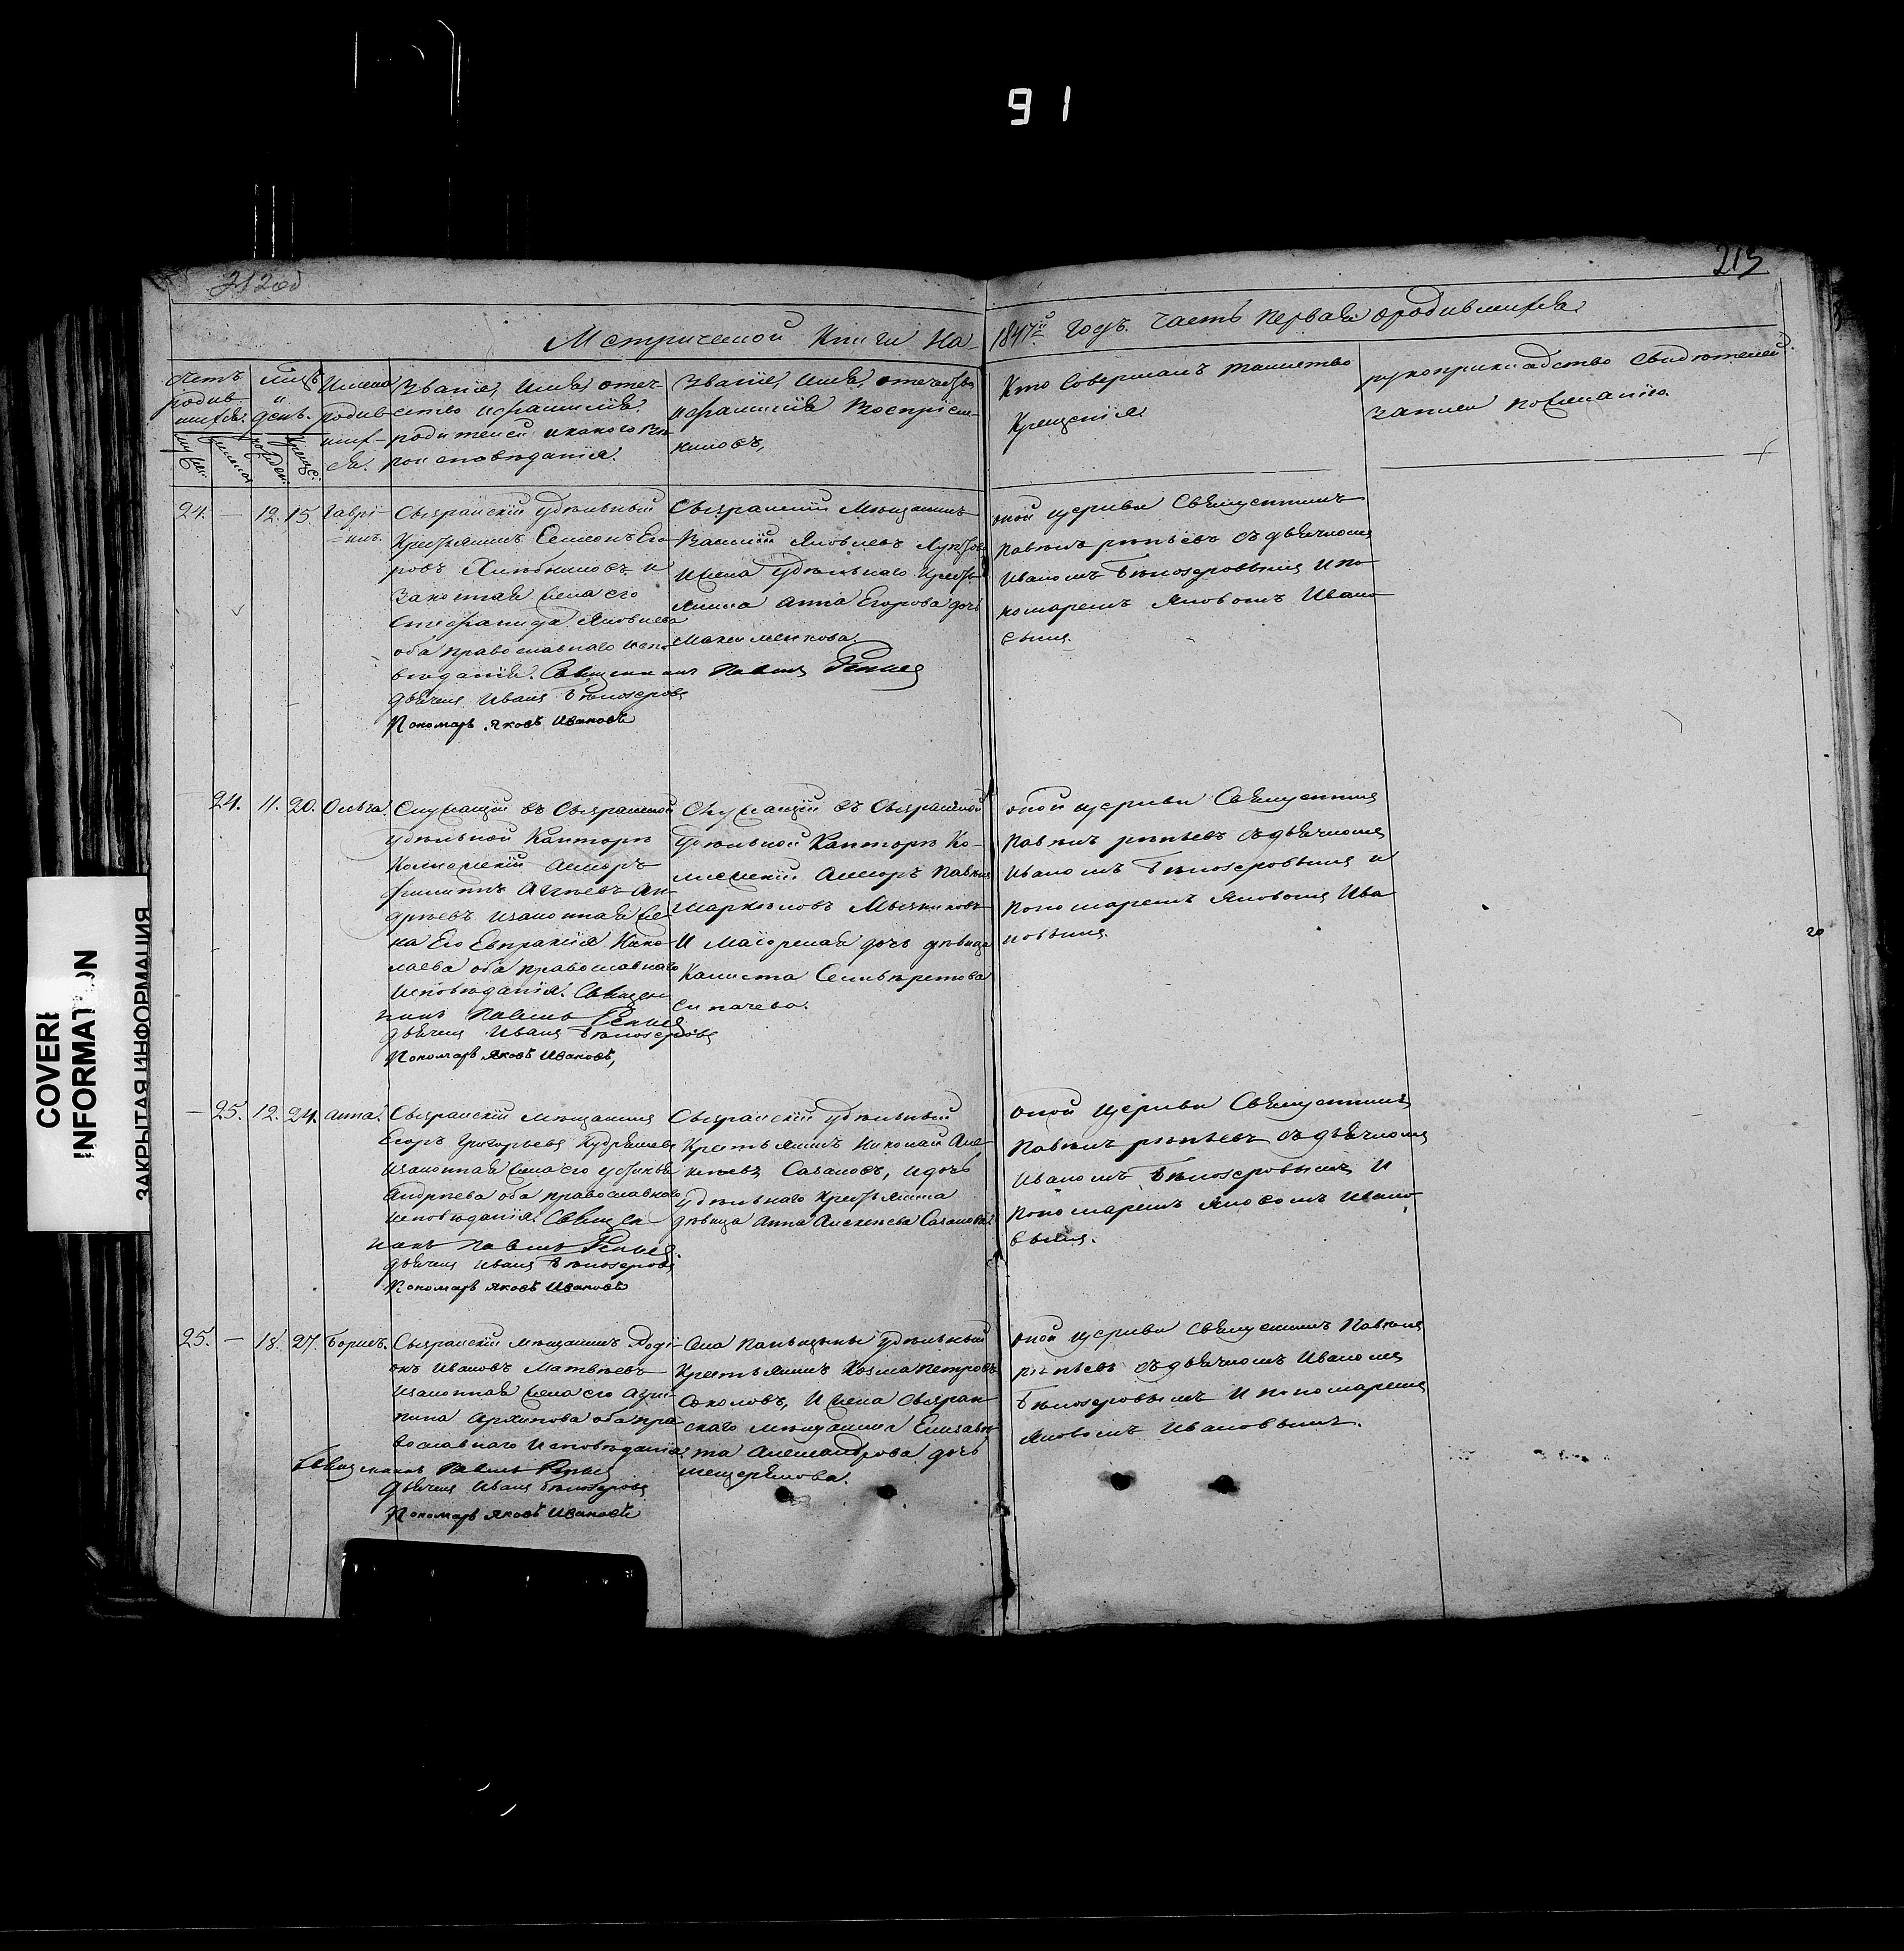 91
212об
213
Метрической Книги на 1847й годъ. часть первая о родившихся.
Счетъ родив-
шихся.
муж:
женска
мѣсяцъ
и
день.
рожден:
крещ:
Имена
родив-
шихся.
Званіе, Имя отче-
ство и фамилія
родителей и какого вѣ-
роисповѣданія.
Званіе, Имя, отечество
и фамилія Воспріем-
никовъ,
Кто Совершалъ таинство
Крещенія
рукоприкладство свидѣтелей
записи по желанію.
24. — 12. 15. Гаврі-
илъ.
Сызранскій удѣльный
Крестьянинъ Семеонъ Его-
ровъ Хлѣбниковъ и
Законная жена его
Стефанида Яковлева
оба православнаго испо-
вѣданія. Священникъ Павелъ Репьев
дьячекъ Иванъ Бѣлозеровъ
Пономарь Яковъ Ивановъ
Сызранскій Мѣщанинъ
Василій Яковлевъ
И жена Удѣльнаго Кресть-
янина Анна Егорова дочь
Максименкова
оной церкви Священникъ
Павелъ рѣпьевъ съ дьячкомъ
Иваномъ Бѣлозеровымъ и по-
номаремъ Яковомъ Ивано-
вымъ.
24. 11. 20. Ольга.
Служащій въ Сызранской
удѣльной Канторѣ
Колежскій Асесоръ
Филиппъ Агѣевъ Ан-
дрѣевъ и законная же-
на Его Евпраксія Нико-
лаева оба православнаго
исповѣданія. Священ-
никъ Павелъ Репьев
дьячекъ Иванъ Бѣлозеровъ
Пономарь Яковъ Ивановъ,
Служащій въ Сызранской
Удѣльной Канторѣ Ко-
лежскій Асесоръ Павелъ
Маркѣловъ Мясниковъ
И Маіорская дочь дѣвица
Калиста Селиверстова
оной церкви Священникъ
Павелъ рѣпьевъ съ дьячкомъ
Иваномъ Бѣлозеровымъ и
Пономаремъ Яковомъ Ива-
новымъ.
20
— 25. 12. 24. Анна.
Сызранскій мѣщанинъ
Егоръ Григорьевъ Кудряшевъ
и законная жена его Устинья
Андрѣева оба православнаго
исповѣданія. Священ-
никъ Павелъ Репьев.
дьячекъ Иванъ Бѣлозеровъ
Пономарь Яковъ Ивановъ
Сызранскій удѣльный
Крестьянинъ Николай Але-
ксѣевъ Сазановъ, и дочь
удѣльнаго Крестьянина
дѣвица Анна Алексѣева Сазанова.
оной церкви Священникъ
Павелъ рѣпьевъ съ дьячкомъ
Иваномъ Бѣлозеровымъ И
Пономаремъ Яковомъ Ивано-
вымъ.
25. — 18. 27. Борисъ.
Сызранскій мѣщанинъ Родi-
онъ Ивановъ Матвѣевъ
и законная жена его Агри-
пина Архипова оба пра-
вославнаго Исповѣданія
Священникъ Павелъ Репьев
дьячекъ Иванъ Бѣлозеровъ
Пономарь Яковъ Ивановъ
Села Паньшины удѣльный
Крестьянинъ Козма Петровъ
Соколовъ, И жена Сызран-
скаго мѣщанина Елизаве-
та Александрова дочь
мещерякова.
оной церкви священникъ Павелъ
рѣпьевъ съ дьячкомъ Иваномъ
Бѣлозеровымъ И пономаремъ
Яковомъ Ивановымъ.
COVER
INFORMATION
ЗАКРЫТАЯ ИНФОРМАЦИЯ